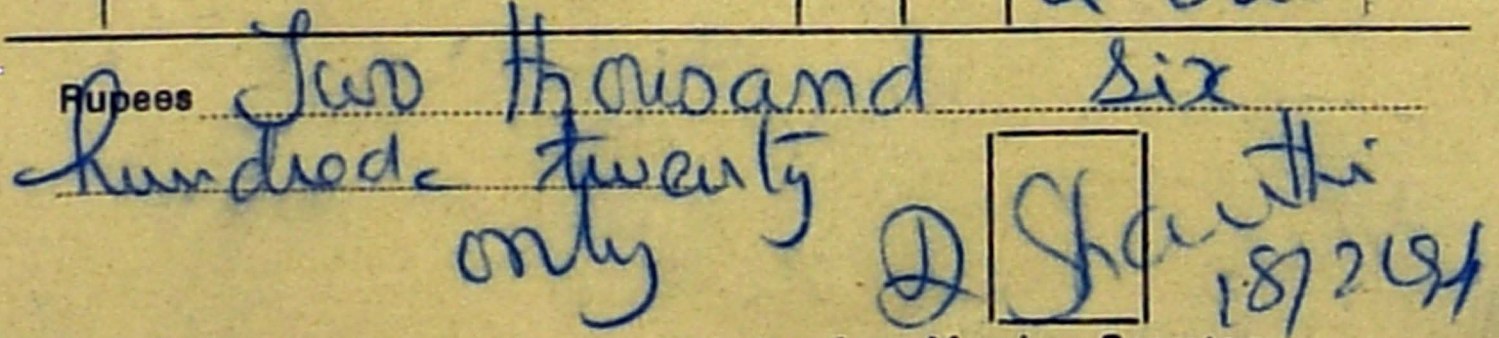 Rupees Two thousand six
hundred twenty
only D Shanthi
18/2/91